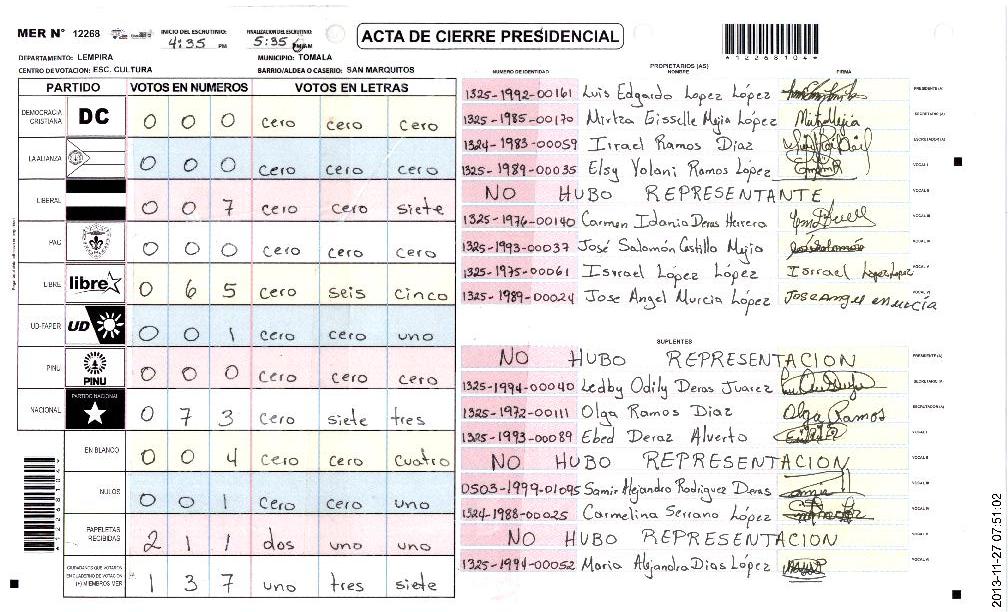 MER N° 12268 INICIO DEL ESCRUTINIO: 4:35 PM FINALIZACION DEL ESCRUTINIO: 5:35 PM/AM ACTA DE CIERRE PRESIDENCIAL
*12268104*
DEPARTAMENTO: LEMPIRA MUNICIPIO: TOMALA
CENTRO DE VOTACION: ESC. CULTURA BARRIO/ALDEA O CASERIO: SAN MARQUITOS
PARTIDO VOTOS EN NUMEROS VOTOS EN LETRAS
DEMOCRACIA CRISTIANA DC 0 0 0 cero cero cero
LA ALIANZA 0 0 0 cero cero cero
LIBERAL 0 0 7 cero cero siete
PAC 0 0 0 cero cero cero
LIBRE libre 0 6 5 cero seis cinco
UD-FAPER UD 0 0 1 cero cero uno
PINU PINU 0 0 0 cero cero cero
NACIONAL PARTIDO NACIONAL 0 7 3 cero siete tres
EN BLANCO 0 0 4 cero cero cuatro
NULOS 0 0 1 cero cero uno
PAPELETAS RECIBIDAS 2 1 1 dos uno uno
CIUDADANOS QUE VOTARON EN CUADERNO DE VOTACION (+) MIEMBROS MER 1 3 7 uno tres siete
PROPIETARIOS (AS)
NUMERO DE IDENTIDAD NOMBRE FIRMA
1325-1992-00161 Luis Edgardo Lopez López PRESIDENTE(A)
1325-1985-00170 Mirtza Gisselle Mejia López SECRETARIO(A)
1324-1983-00059 Isrrael Ramos Diaz ESCRUTADOR(A)
1325-1989-00035 Elsy Yolani Ramos López VOCAL I
NO HUBO REPRESENTANTE VOCAL II
1325-1976-00140 Carmen Idania Deras Herrera VOCAL III
1325-1993-00037 José Salomón Castillo Mejio VOCAL IV
1325-1975-00061 Isrrael López López Isrrael Lopez Lopez VOCAL V
1325-1989-00024 Jose Angel Murcia López VOCAL VI
SUPLENTES
NO HUBO REPRESENTACION PRESIDENTE(A)
1325-1994-00040 Ledby Odily Deras Juarez SECRETARIO (A)
1325-1972-00111 Olga Ramos Diaz Olga Ramos ESCRUTADOR(A)
1325-1993-00089 Ebed Deraz Alverto VOCAL I
NO HUBO REPRESENTACION VOCAL II
0503-1999-01095 Samir Alejandro Rodriguez Deras VOCAL III
1324-1988-00025 Carmelina Serrano López VOCAL IV
NO HUBO REPRESENTACION VOCAL V
1325-1994-00052 Maria Alejandra Dias López VOCAL VI
2013-11-27 07:51:02